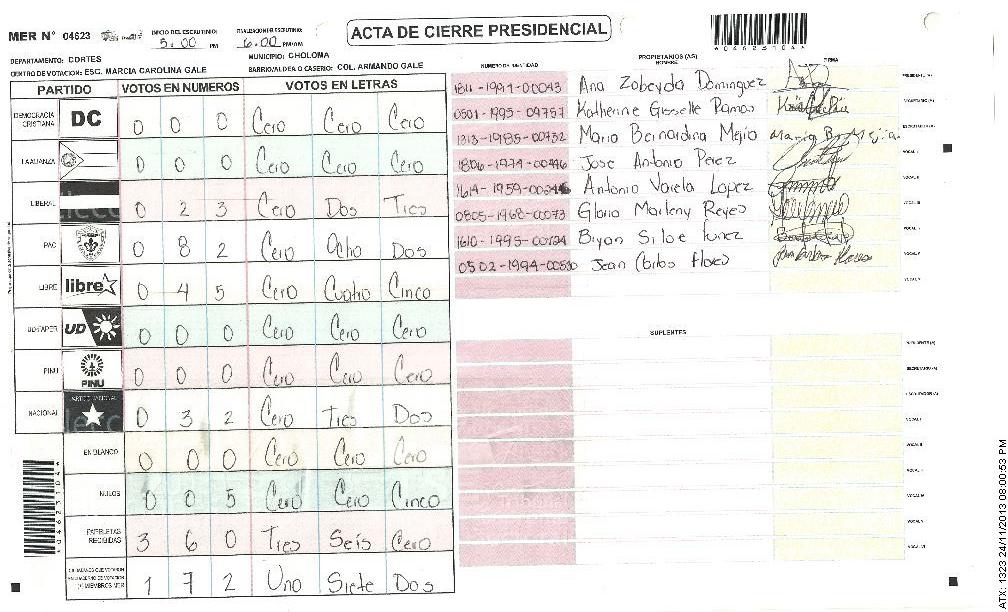 MER N° 04623 INICIO DEL ESCRUTINIO: 5:00 PM FINALIZACION ESCRUTINIO: 6:00 PM/AM ACTA DE CIERRE PRESIDENCIAL
DEPARTAMENTO: CORTES MUNICIPIO: CHOLOMA
CENTRO DE VOTACION: ESC. MARCIA CAROLINA GALE BARRIO/ALDEA O CASERIO: COL. ARMANDO GALE
PARTIDO VOTOS EN NUMEROS VOTOS EN LETRAS
DEMOCRACIA CRISTIANA DC 0 0 0 Cero Cero Cero
LA ALIANZA 0 0 0 Cero Cero Cero
LIBERAL 0 2 3 Cero Dos Tres
PAC 0 8 2 Cero Ocho Dos
LIBRE libre 0 4 5 Cero Cuatro Cinco
UD-FAPER UD 0 0 0 Cero Cero Cero
PINU PINU 0 0 0 Cero Cero Cero
NACIONAL PARTIDO NACIONAL 0 3 2 Cero Tres Dos
EN BLANCO 0 0 0 Cero Cero Cero
NULOS 0 0 5 Cero Cero Cinco
PAPELETAS RECIBIDAS 3 6 0 Tres Seis Cero
CIUDADANOS QUE VOTARON 1 7 2 Uno Siete Dos
*04623104*
PROPIETARIOS (AS)
NUMERO DE IDENTIDAD NOMBRE FIRMA
1811-1991-00043 Ana Zobeyda Dominguez PRESIDENTE (A)
0501-1995-09757 Katherine Gisselle Ramos SECRETARIO (A)
1313-1985-00732 Maria Bernardina Mejia Maria B. Mejia ESCRUTADOR (A)
1806-1974-00446 Jose Antonio Perez VOCAL I
Antonio Varela Lopez VOCAL II
0805-1968-00073 Gloria Marleny Reyes VOCAL III
1610-1995-00124 Bryan Siloe Funez
Jean Carlos Flores Jean Carlos Flores
SUPLENTES
PRESIDENTE (A)
SECRETARIO (A)
ESCRUTADOR (A)
VOCAL I
VOCAL II
*04623104*
ATX: 1323 24/11/2013 08:00:53 PM